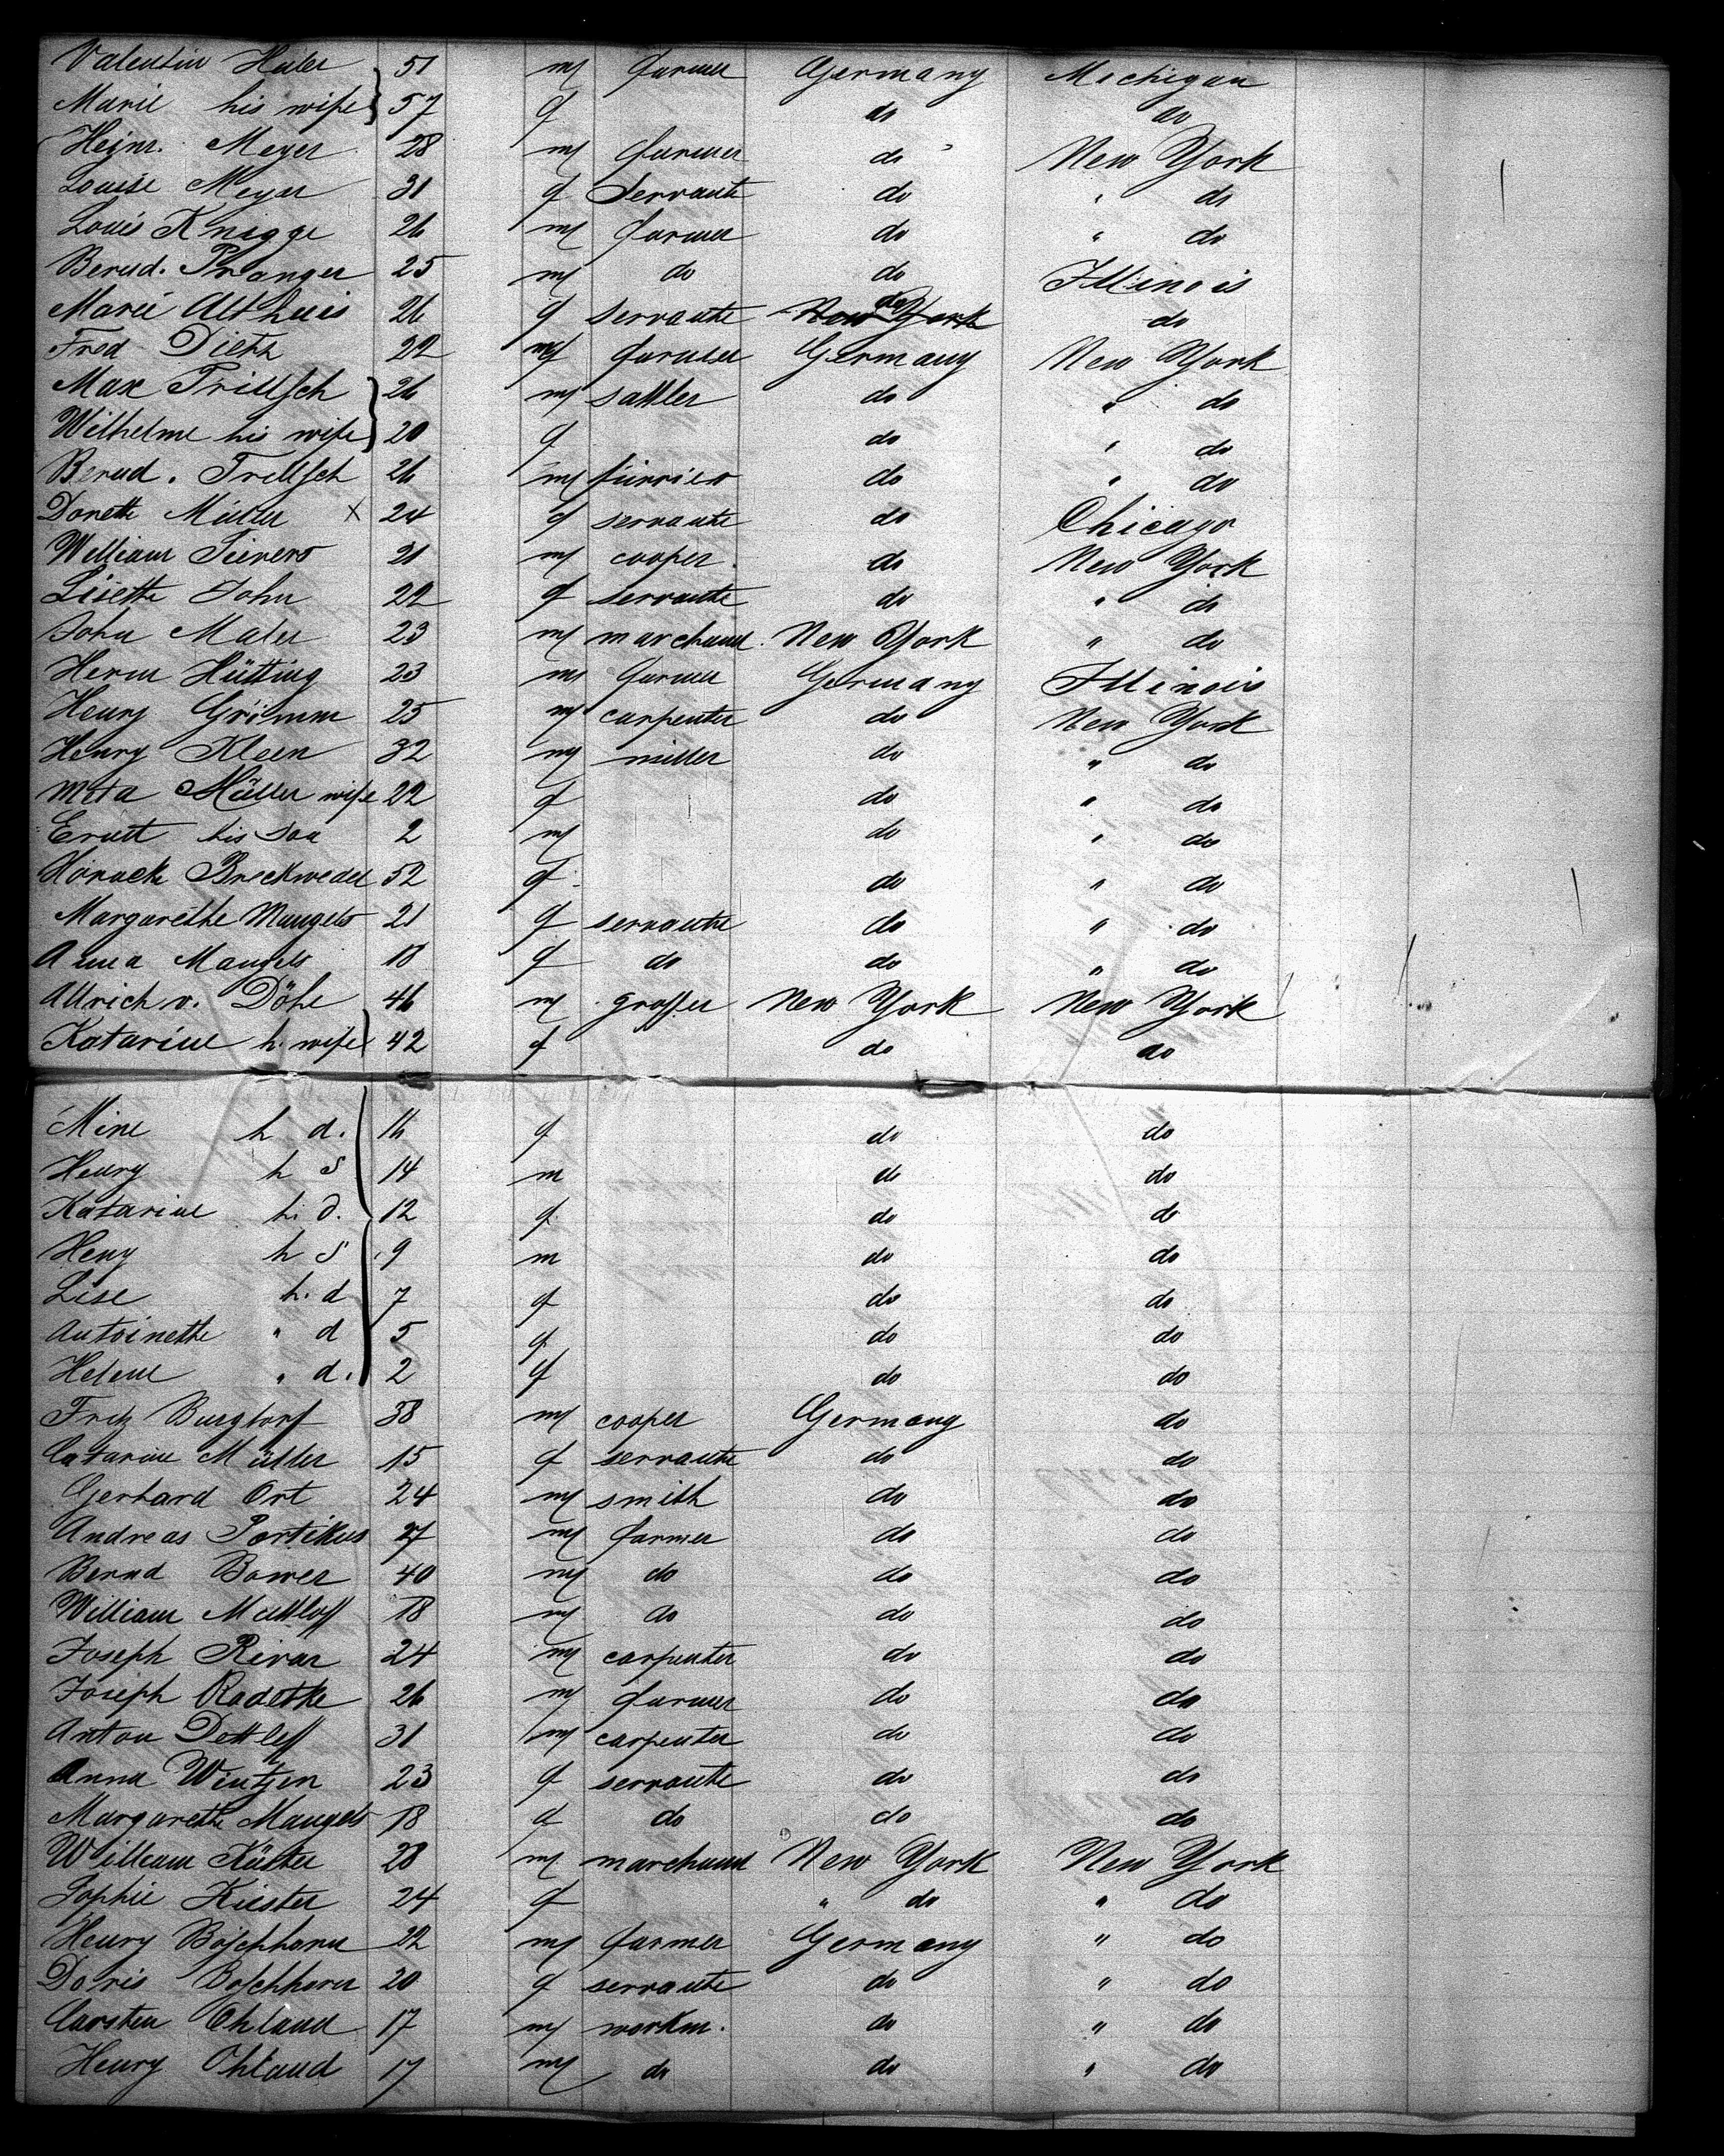 Valentin Huler 51 m farmer Germany Michigan
Marie his wife 57 f do do
Heinr. Meyer 28 m farmer do New York
Louise Meyer 31 f Servante do " do
Louis Knigge 26 m farmer do " do
Bernd. Pranger 25 m do do Illinois
Marie Althuis 26 f servante New York do do
Fred Dietz 22 m farmer Germany New York
Max Trillsch 26 m sattler do " do
Wilhelme his wife 20 f do " do
Bernd. Trillsch 26 m furrier do " do
Dorette Müller x 24 f servante do Chicago
William Sievers 21 m cooper do New York
Lisette John 22 f servante do " do
John Maler 23 m marchand. New York " do
Herm Hütting 23 m farmer Germany Illinois
Henry Grimm 25 m carpenter do New York
Henry Kleen 32 m miller do " do
Meta Müller wife 22 f do " do
Ernst his son 2 m do " do
Breckwedel 52 f do " do
Margarethe Mangels 21 f servante do " do
Anna Mangels 18 f do do " do
Allrich v. Döhe 46 m grosser New York New York
Katarine h. wife 42 f do do
Mine h d. 16 f do do
Henry h S 14 m do do
Katarine h. d. 12 f do do
Heny h S 9 m do do
Lise h. d 7 f do do
Antoinette " d 5 f do do
Helene " d. 2 f do do
Fritz Burgtorf 38 m cooper Germany do
Catarine Müller 15 f servante do do
Gerhard Ort 24 m smith do do
Andreas Portikus 27 m farmer do do
Bernd Bower 40 m do do do
William Muttloff 18 m do do do
Joseph Rivar 24 m carpenter do do
Joseph Radetke 26 m farmer do do
Anton Dettleff 31 m carpenter do do
Anna Wintzen 23 f servante do do
Margarethe Mangels 18 f do do do
William Küster 28 m marchand New York New York
Sophie Küster 24 f " do " do
Henry Böschhorn 22 m farmer Germany " do
Doris Boschhorn 20 f servante do " do
Carsten Ohland 17 m workm. do " do
Henry Ohland 17 m do do " do